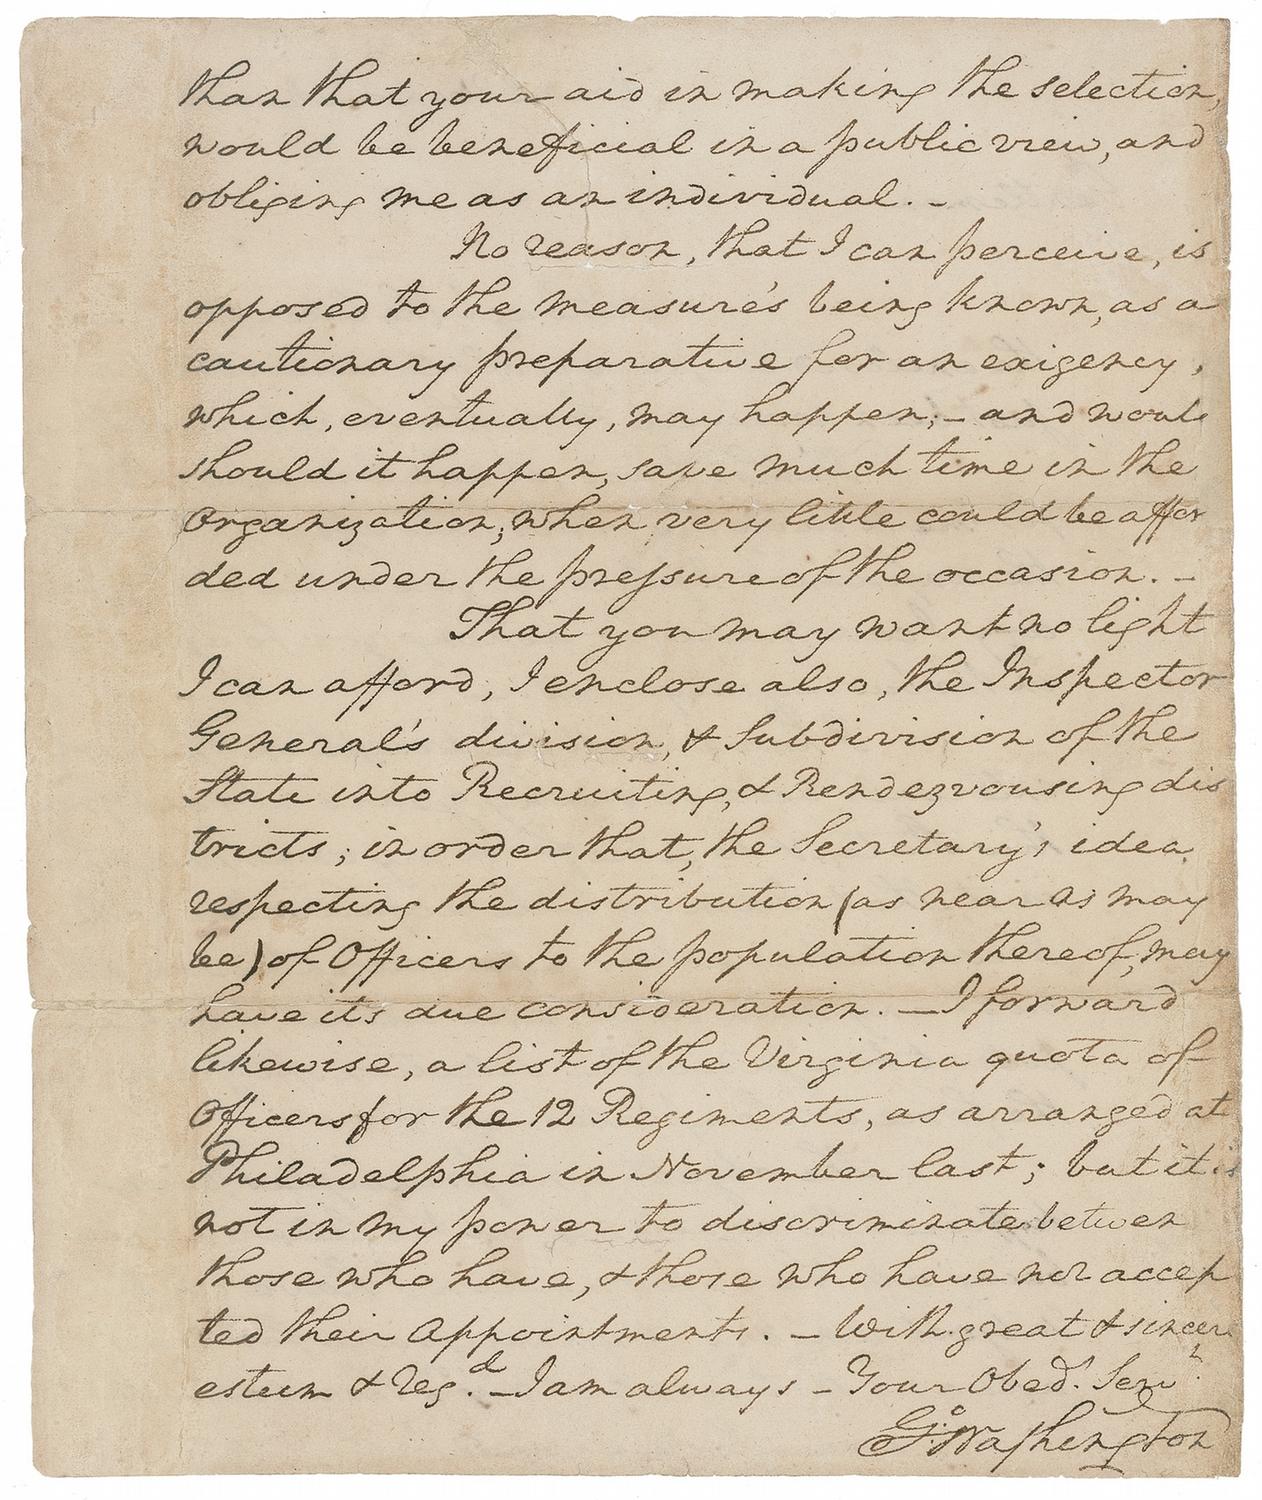 than that your aid in making the selection,
would be beneficial in a public view, and
obliging me as an individual. -
No reason, that I can perceive, is
opposed to the measure's being known, as a
cautionary preparative for an exigency,
which, eventually, may happen; - and woul
should it happen, save much time in the
Organization; when very little could be affor
ded under the pressure of the occasion. -
That you may want no light
I can afford, I enclose also, the Inspector
General's division, & Subdivision of the
State into Recruiting, & Rendezvousing dis
tricts; in order that, the Secretary's idea
respecting the distribution (as near as may
be) of Officers to the population thereof, may
have its due consideration. - I forward
likewise, a list of the Virginia quota of
Officers for the 12 Regiments, as arranged at
Philadelphia in November last; but it is
not in my power to discriminate between
those who have, & those who have not accep
ted their Appointments. - With great & sincere
esteem & Reg.d - I am always - Your Obed.t Serv.t
G:o Washington